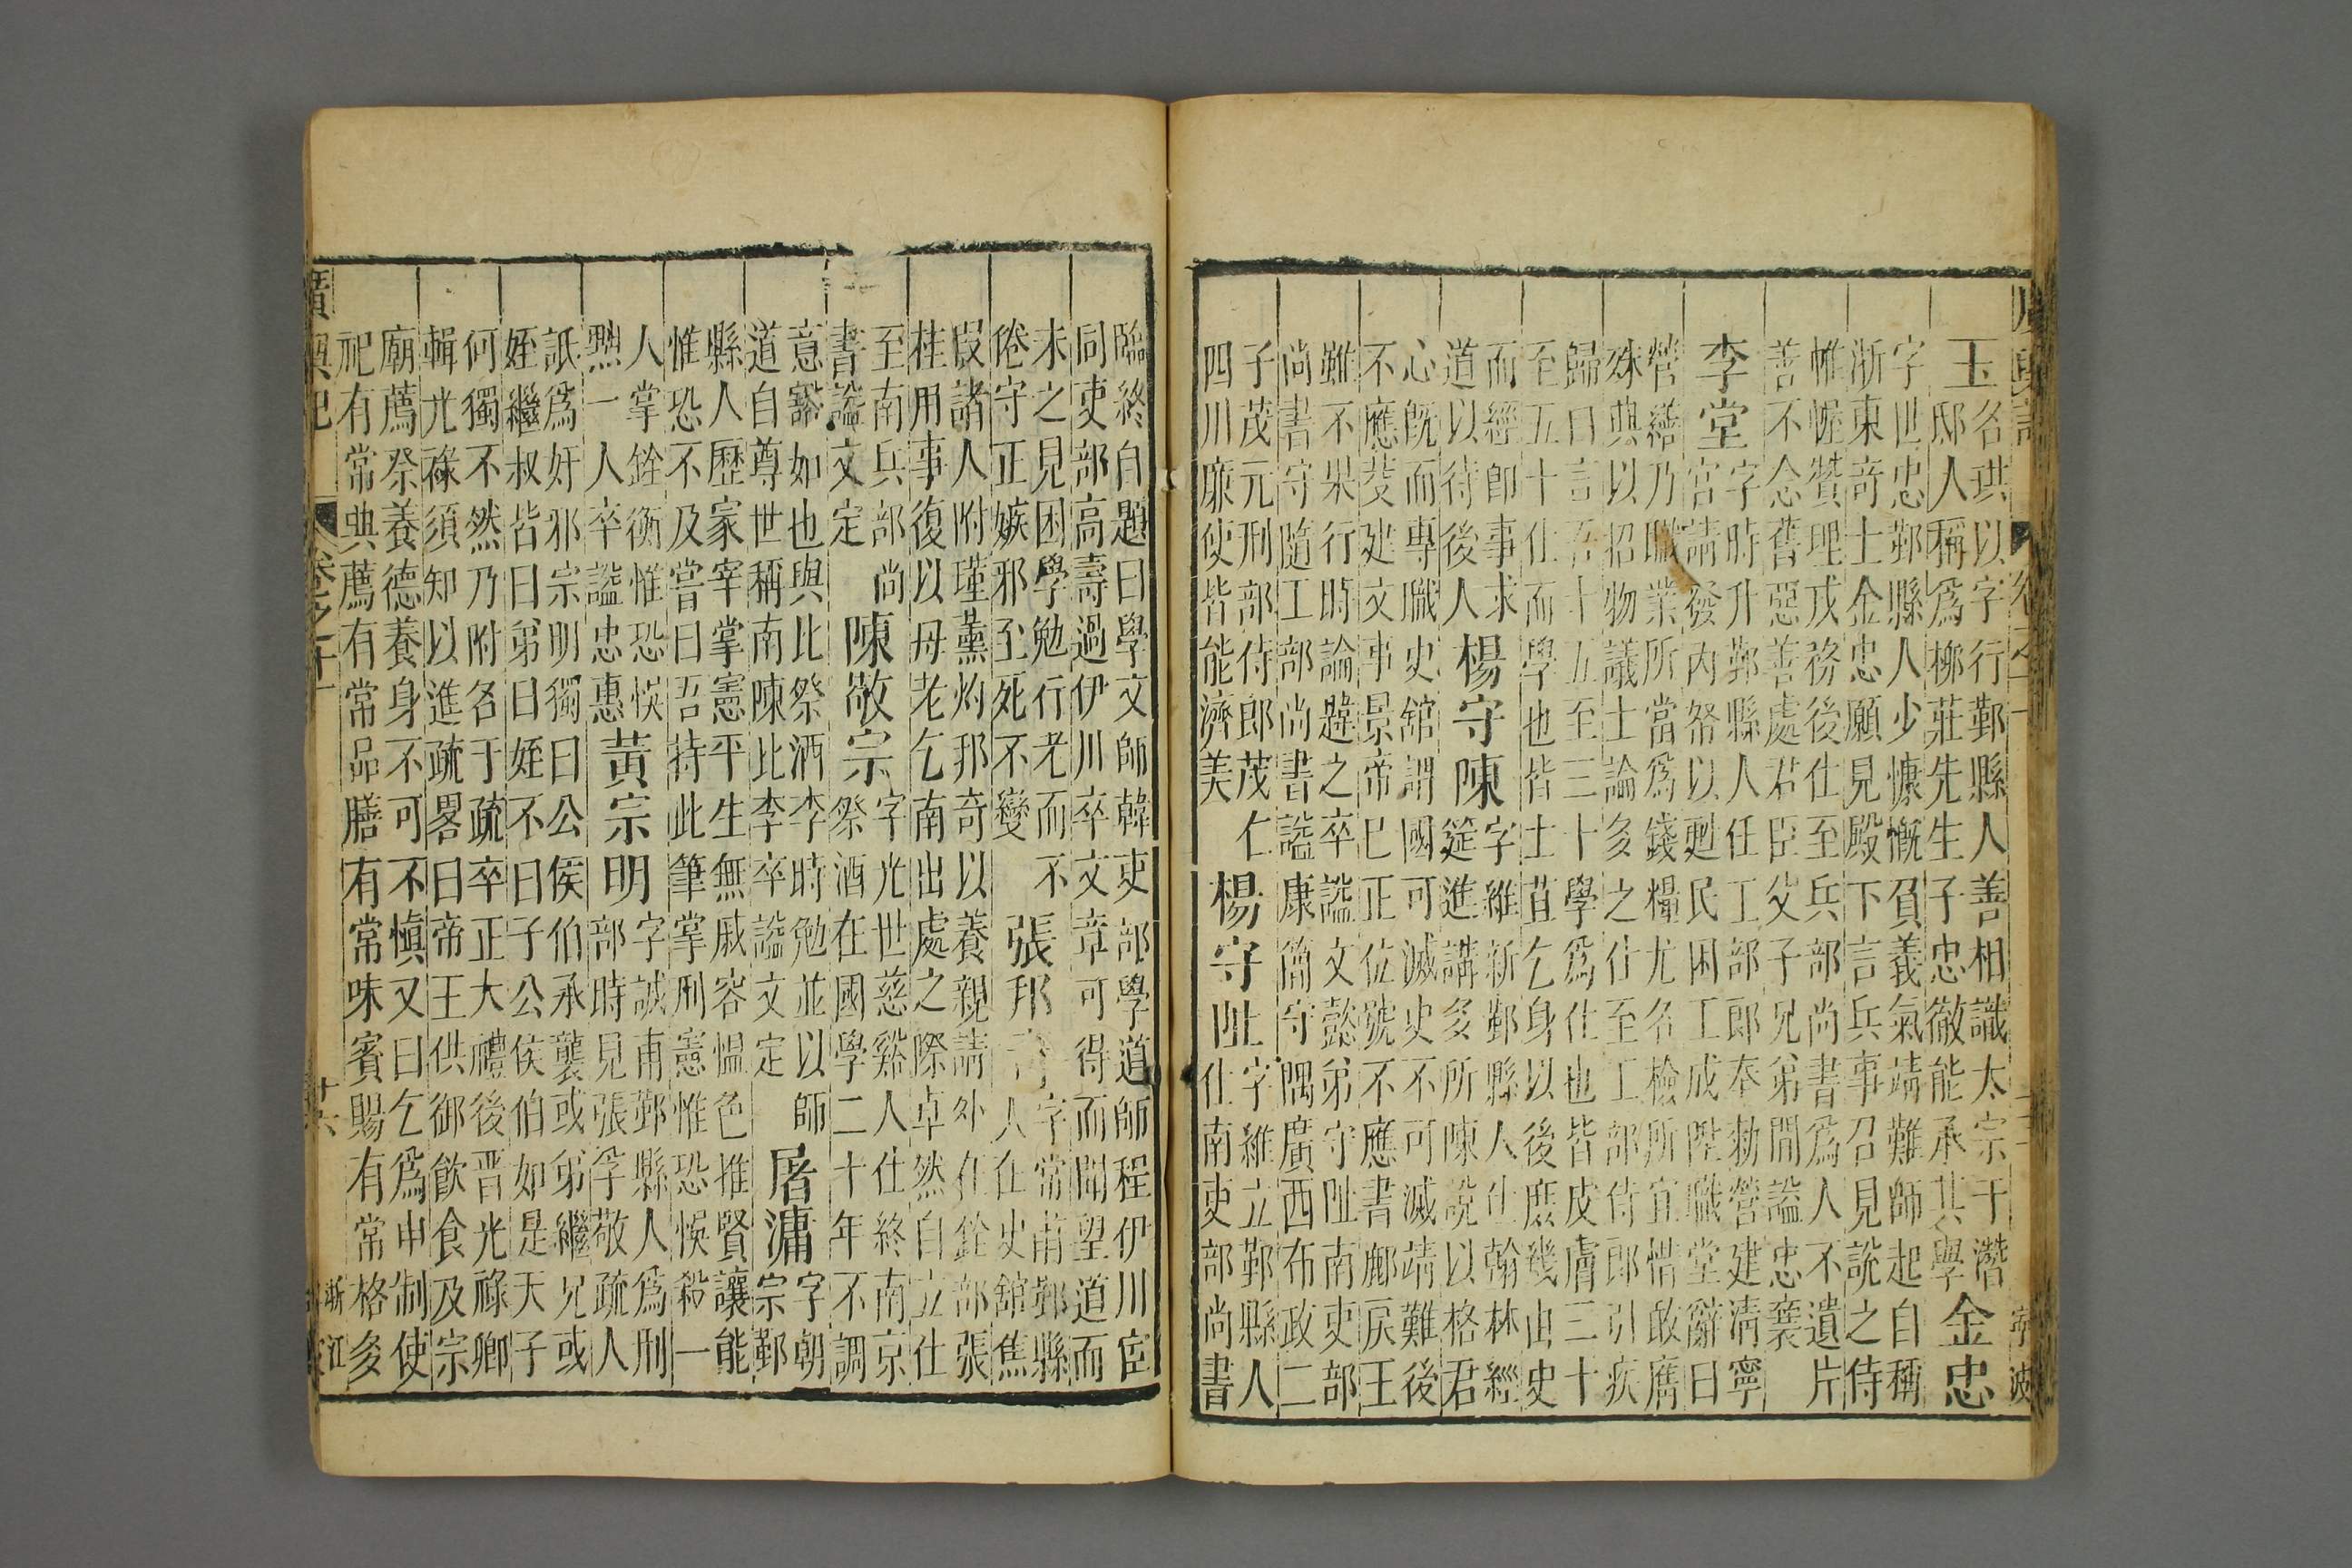 廣輿記 卷之十一 寧波
玉名珙以字行鄞縣人善相識太宗于潛
邸人稱爲柳莊先生子忠徹能承其學
金忠
字世忠鄞縣人少慷慨負義氣靖難師起自稱
浙東奇士金忠願見殿下言兵事召見説之侍
帷幄贊理戎務後仕至兵部尚書爲人不遺片
善不念舊惡善處君臣父子兄弟間謚忠襄
李堂
字時升鄞縣人任工部郎奉勑營建清寧
宮請發内帑以甦民困工成陞職堂辭曰
營繕乃職業所當爲錢糧尤名檢所宜惜敢膺
殊典以招物議士論多之仕至工部侍郎引疾
歸曰言吾十五至三十學爲仕也皆皮膚三十
至五十仕而學也皆土苴乞身以後庶幾由史
而經即事求
道以待後人
楊守陳
字維新鄞縣人仕翰林經
筵進講多所陳説以格君
心既而專職史舘謂國可滅史不可滅靖難後
不應芟建文事景帝巳正位號不應書郕戾王
雖不果行時論韙之卒謚文懿弟守阯南吏部
尚書守隨工部尚書謚康簡守隅廣西布政二
子茂元刑部侍郎茂仁
四川廉使皆能濟美
楊守阯
字維立鄞縣人
仕南吏部尚書
臨終自題曰學文師韓吏部學道師程伊川官而
同吏部高壽過伊川卒文章可得而聞望道而
未之見困學勉行老而不
倦守正嫉邪至死不變
張邦奇
字常甫鄞縣
人仕史舘焦
叚諸人附瑾薰灼邦奇以養親請外任銓部張
桂用事復以母老乞南出處之際卓然自立仕
至南兵部尚
書謚文定
陳敬宗
字光世慈谿人仕終南京
祭酒在國學二十年不調
意豁如也與比祭酒李時勉並以師
道自尊世稱南陳比李卒謚文定
屠滽
字朝
宗鄞
縣人歷家宰掌憲平生無戚容慍色推賢讓能
惟恐不及嘗曰吾持此筆掌刑憲惟恐悞殺一
人掌銓衡惟恐悞
黜一人卒謚忠惠
黃宗明
字誠甫鄞縣人爲刑
部時見張孚敬疏人
詆爲奸邪宗明獨曰公侯伯承襲或弟繼兄或
姪繼叔皆曰弟曰姪不曰子公侯伯如是天子
何獨不然乃附名于疏卒正大禮後晋光祿卿
輯光祿須知以進疏畧曰帝王供御飲食及宗
廟薦祭養德養身不可不慎又曰乞爲申制使
祀有常典薦有常品膳有常味賓賜有常格多
廣輿記 卷之十一 十六 浙江